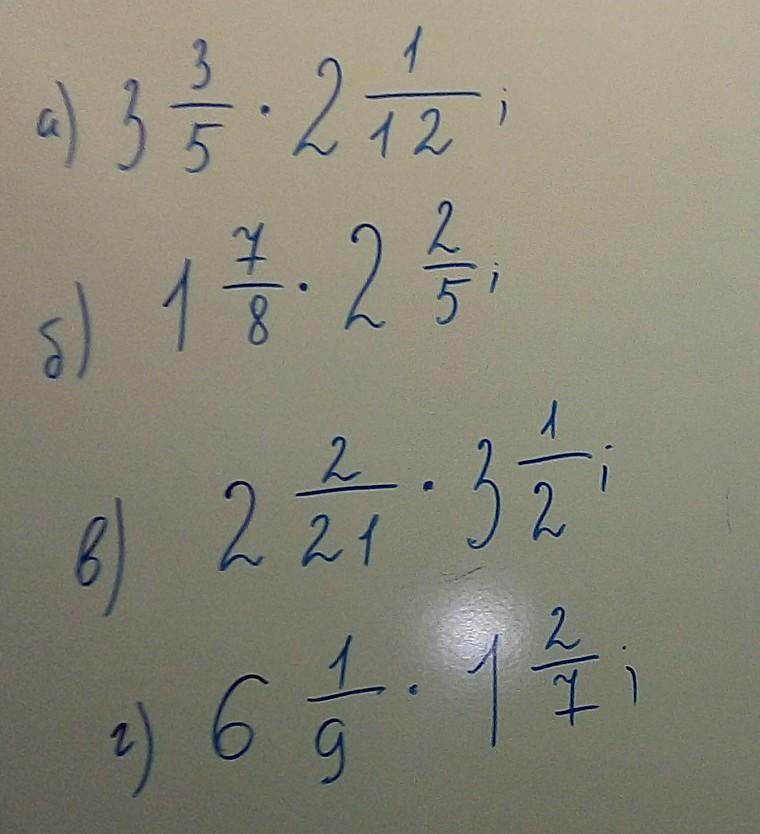 а) 3 3/5 · 2 1/12;
б) 1 7/8 · 2 2/5;
в) 2 2/21 · 3 1/2;
г) 6 1/9 · 1 2/7;